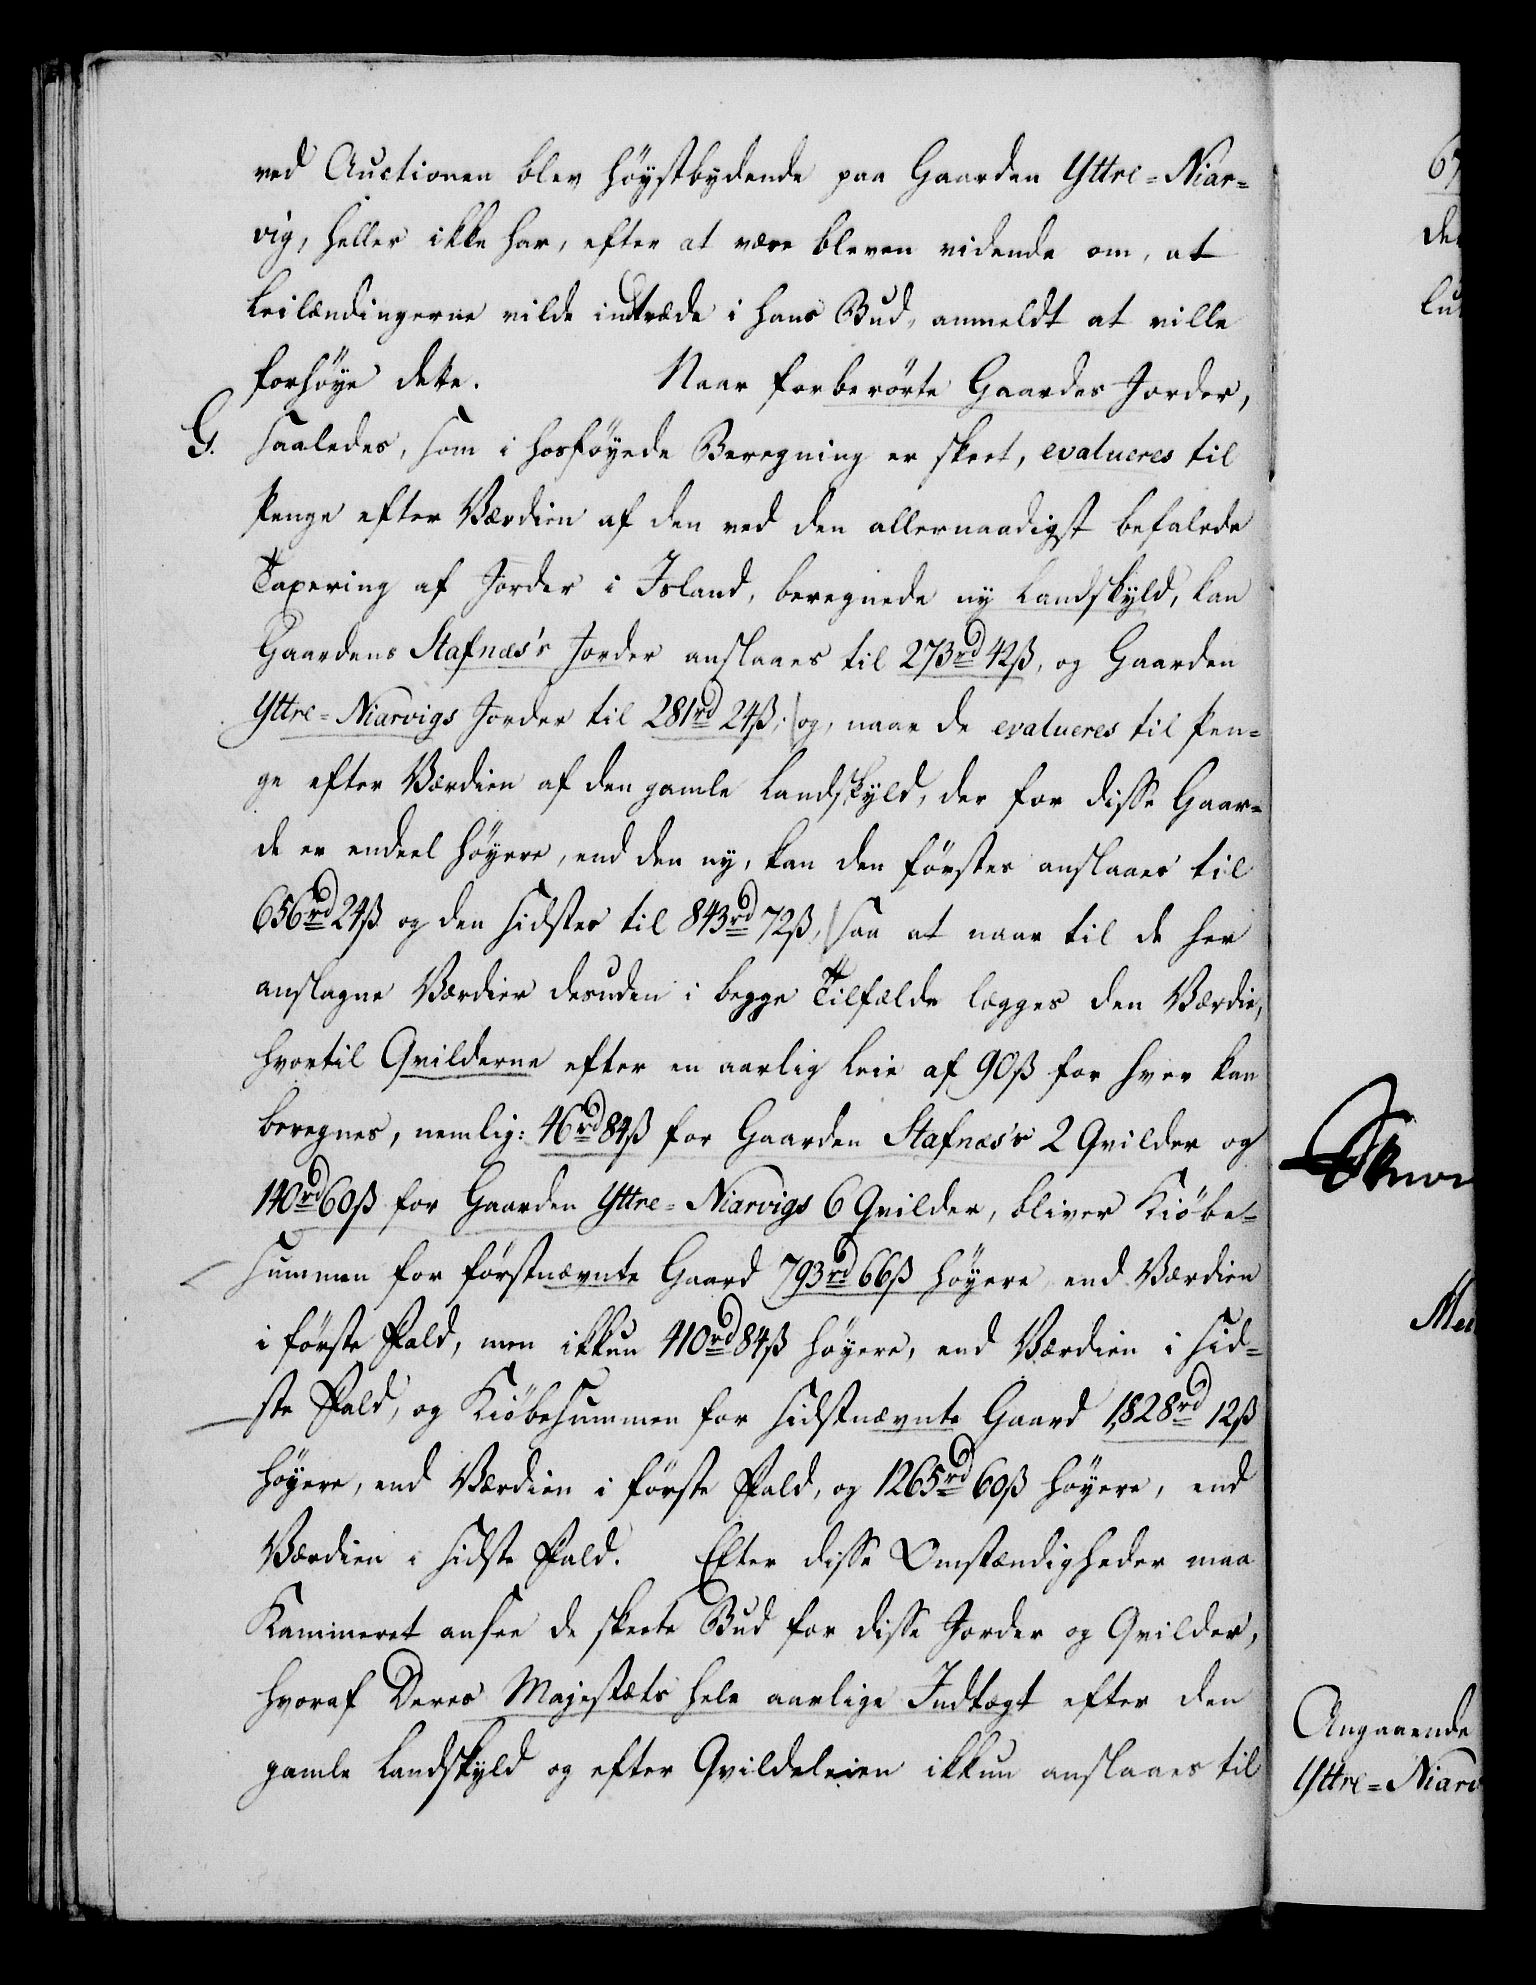 ved Auctionen blev höystbydende paa Gaarden Yttre=Niar=
vig, heller ikke har, efter at være bleven vidende om, at
Leilændingerne vilde indtræde i hans Bud, anmeldt at ville
forhöye dette. Naar forberörte Gaardes Jorder,
G. saaledes, som i hosföyede Beregning er skeet, evalueres til
Penge efter Værdien af den ved den allernaadigst befalede
Taxering af Jorder i Island, beregnede ny Landskyld, kan
Gaardens Stafnæs's Jorder anslaaes til 273rd 42ß, og Gaarden
Yttre=Niarvigs Jorder til 281rd 24ß, og, naar de evalueres til Pen=
ge efter Værdien af den gamle Landskyld, der for disse Gaar=
de er endeel höyere, end den ny, kan den förstes anslaaes til
656rd 24ß og den sidstes til 843rd 72ß, saa at naar til de her
anslagne Værdier desuden i begge Tilfælde lægges den Værdie,
hvortil Qvilderne efter en aarlig Leie af 90ß for hver kan
beregnes, nemlig: 46rd 84ß for Gaarden Stafnæs's 2 Qvilder og
140rd 60ß for Gaarden Yttre=Niarvigs 6 Qvilder, bliver Kiöbe=
summen for förstnævnte Gaard 793rd 66ß höyere end Værdien
i förste Fald, men ikkun 410rd 84ß höyere, end Værdien i sid=
ste Fald, og Kiöbesummen for sidstnævnte Gaard 1,828rd 12ß
höyere, end Værdien i förste Fald, og 1265rd 60ß höyere, end
Værdien i sidste Fald. Efter disse Omstændigheder maa
Kammeret ansee de skeete Bud for disse Jorder og Qvilder,
hvoraf Deres Majestæts hele aarlige Indtægt efter den
gamle Landskyld og efter Qvildeleien ikkun anslaaes til
Angaaende
Yttre=Niarv